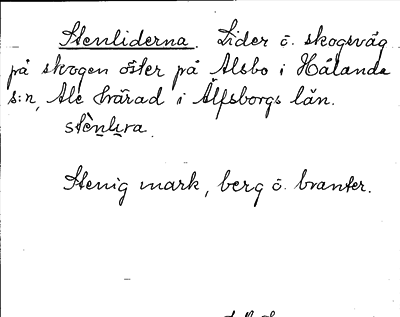 Stenliderna. Lider o. skogsväg
på skogen öster på Alsbo i Hålanda
s:n, Ale härad i Älfsborgs län.
Stenig mark, berg o. branter.